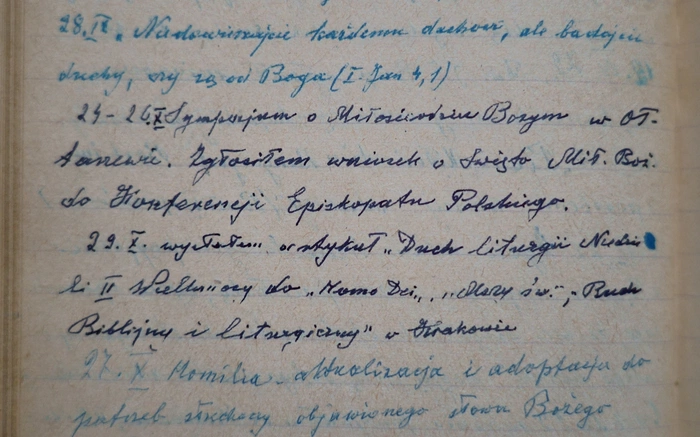 28.IX. Nie dowierzajcie każdemu duchowi, ale badajcie
duchy, czy są od Boga (I Jan 4,1)
24-26.X Sympozjum o Miłosierdziu Bożym w Oł-
tarzewie. Zgłosiłem wniosek o Święto Mił. Boż.
do Konferencji Episkopatu Polskiego.
29.X. wysłałem artykuł „Duch liturgii Niedzie
li II Wielkanocy do „Homo Dei", „Mszy św."; „Ruch
Biblijny i liturgiczny" w Krakowie
27.X Homilia - aktualizacja i adaptacja do
potrzeb słuchaczy objawionego słowa Bożego